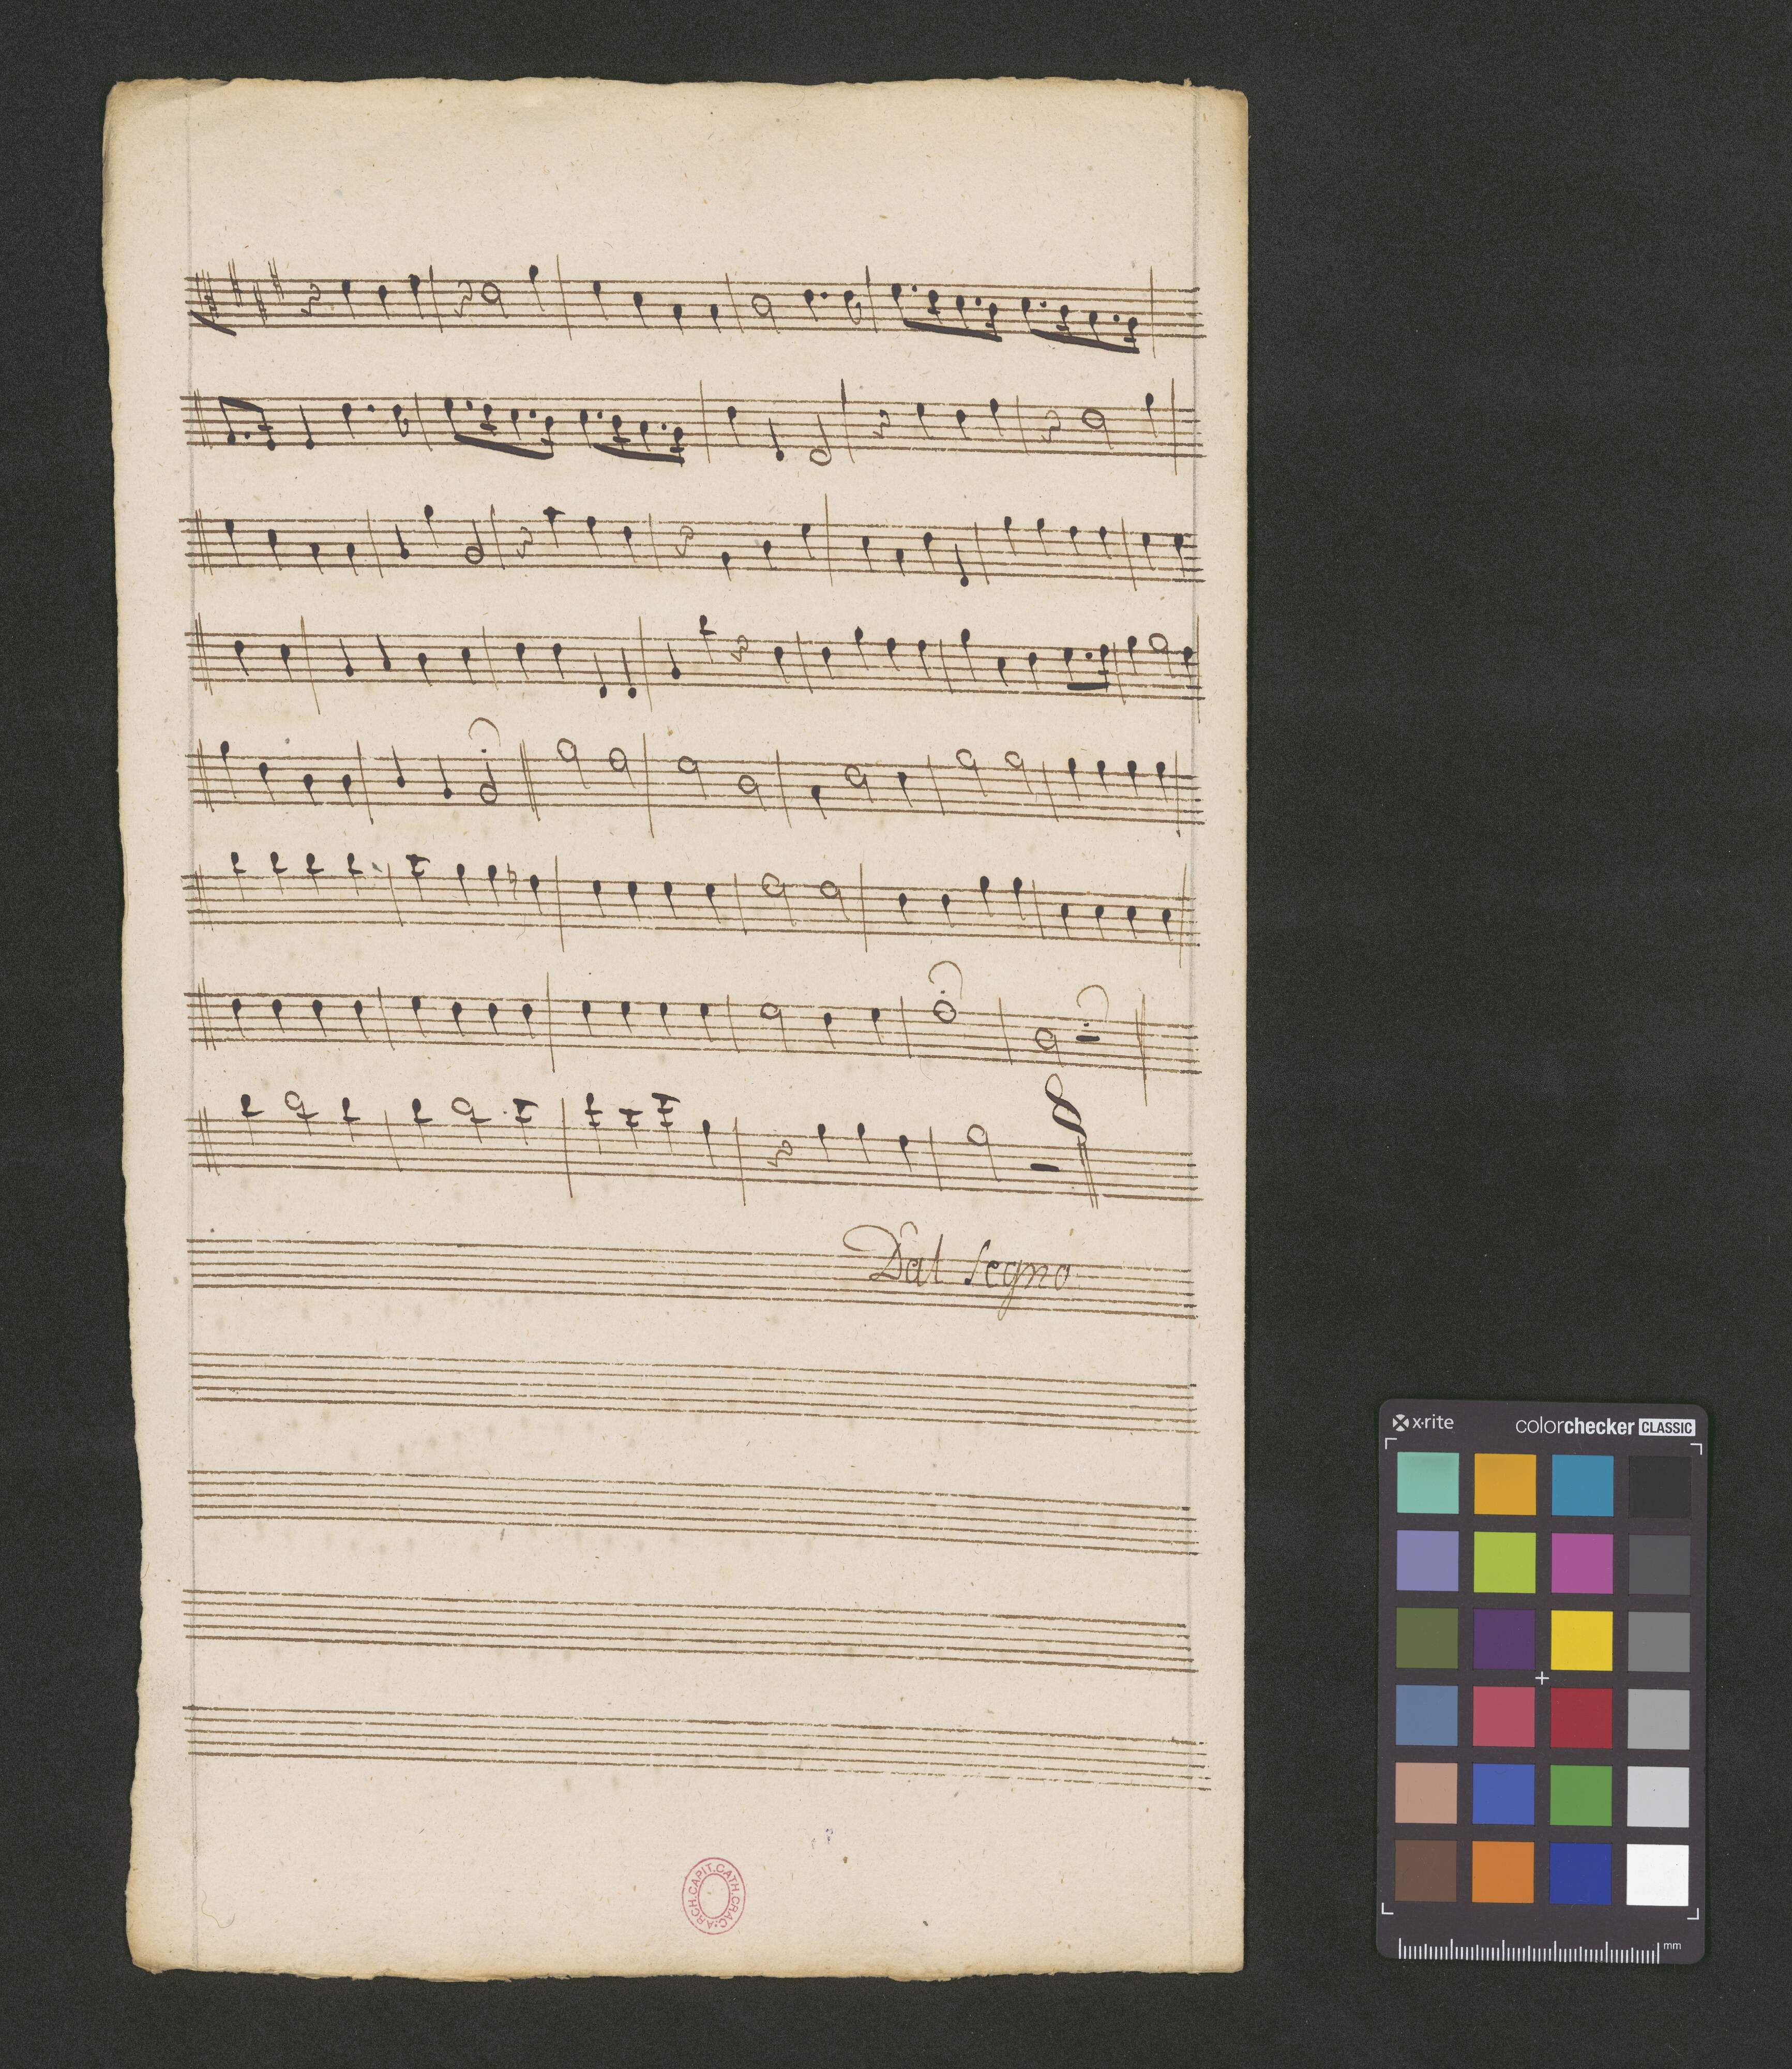 Dal Segno
ARCH.CAPIT.CATH.CRAC.
x-rite
colorchecker CLASSIC
mm